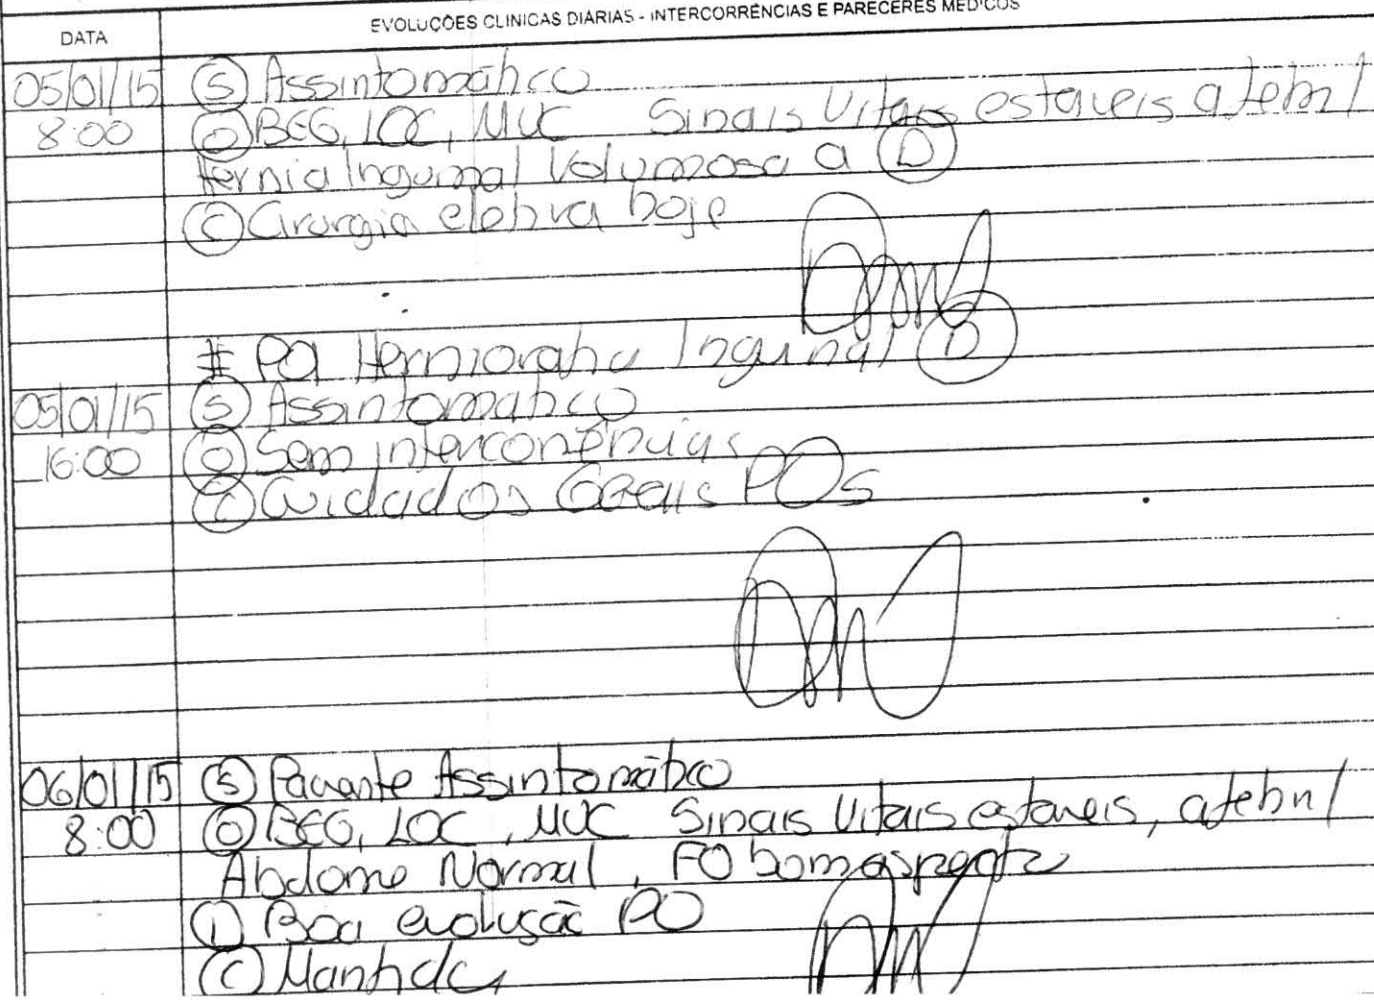 EVOLUÇÕES CLINICAS DIÁRIAS - INTERCORRÊNCIAS E PARECERES MÉDICOS
DATA
05/01/15 (S) Assintomático
8:00 (O) BEG, LOC, MUC Sinais Vitais estaveis afebril
Hernia Inguinal Volumosa a (D)
(C) Cirurgia eletiva hoje
# PO Herniorafia Inguinal (D)
05/01/15 (S) Assintomatico
16:00 (O) Sem intercorrências
(C) Cuidados Gerais POs
06/01/15 (S) Paciente Assintomático
8:00 (O) BEG, LOC, MUC Sinais Vitais estaveis, afebril
Abdome Normal, FO bom aspecto
(I) Boa evolução PO
(C) Mantida